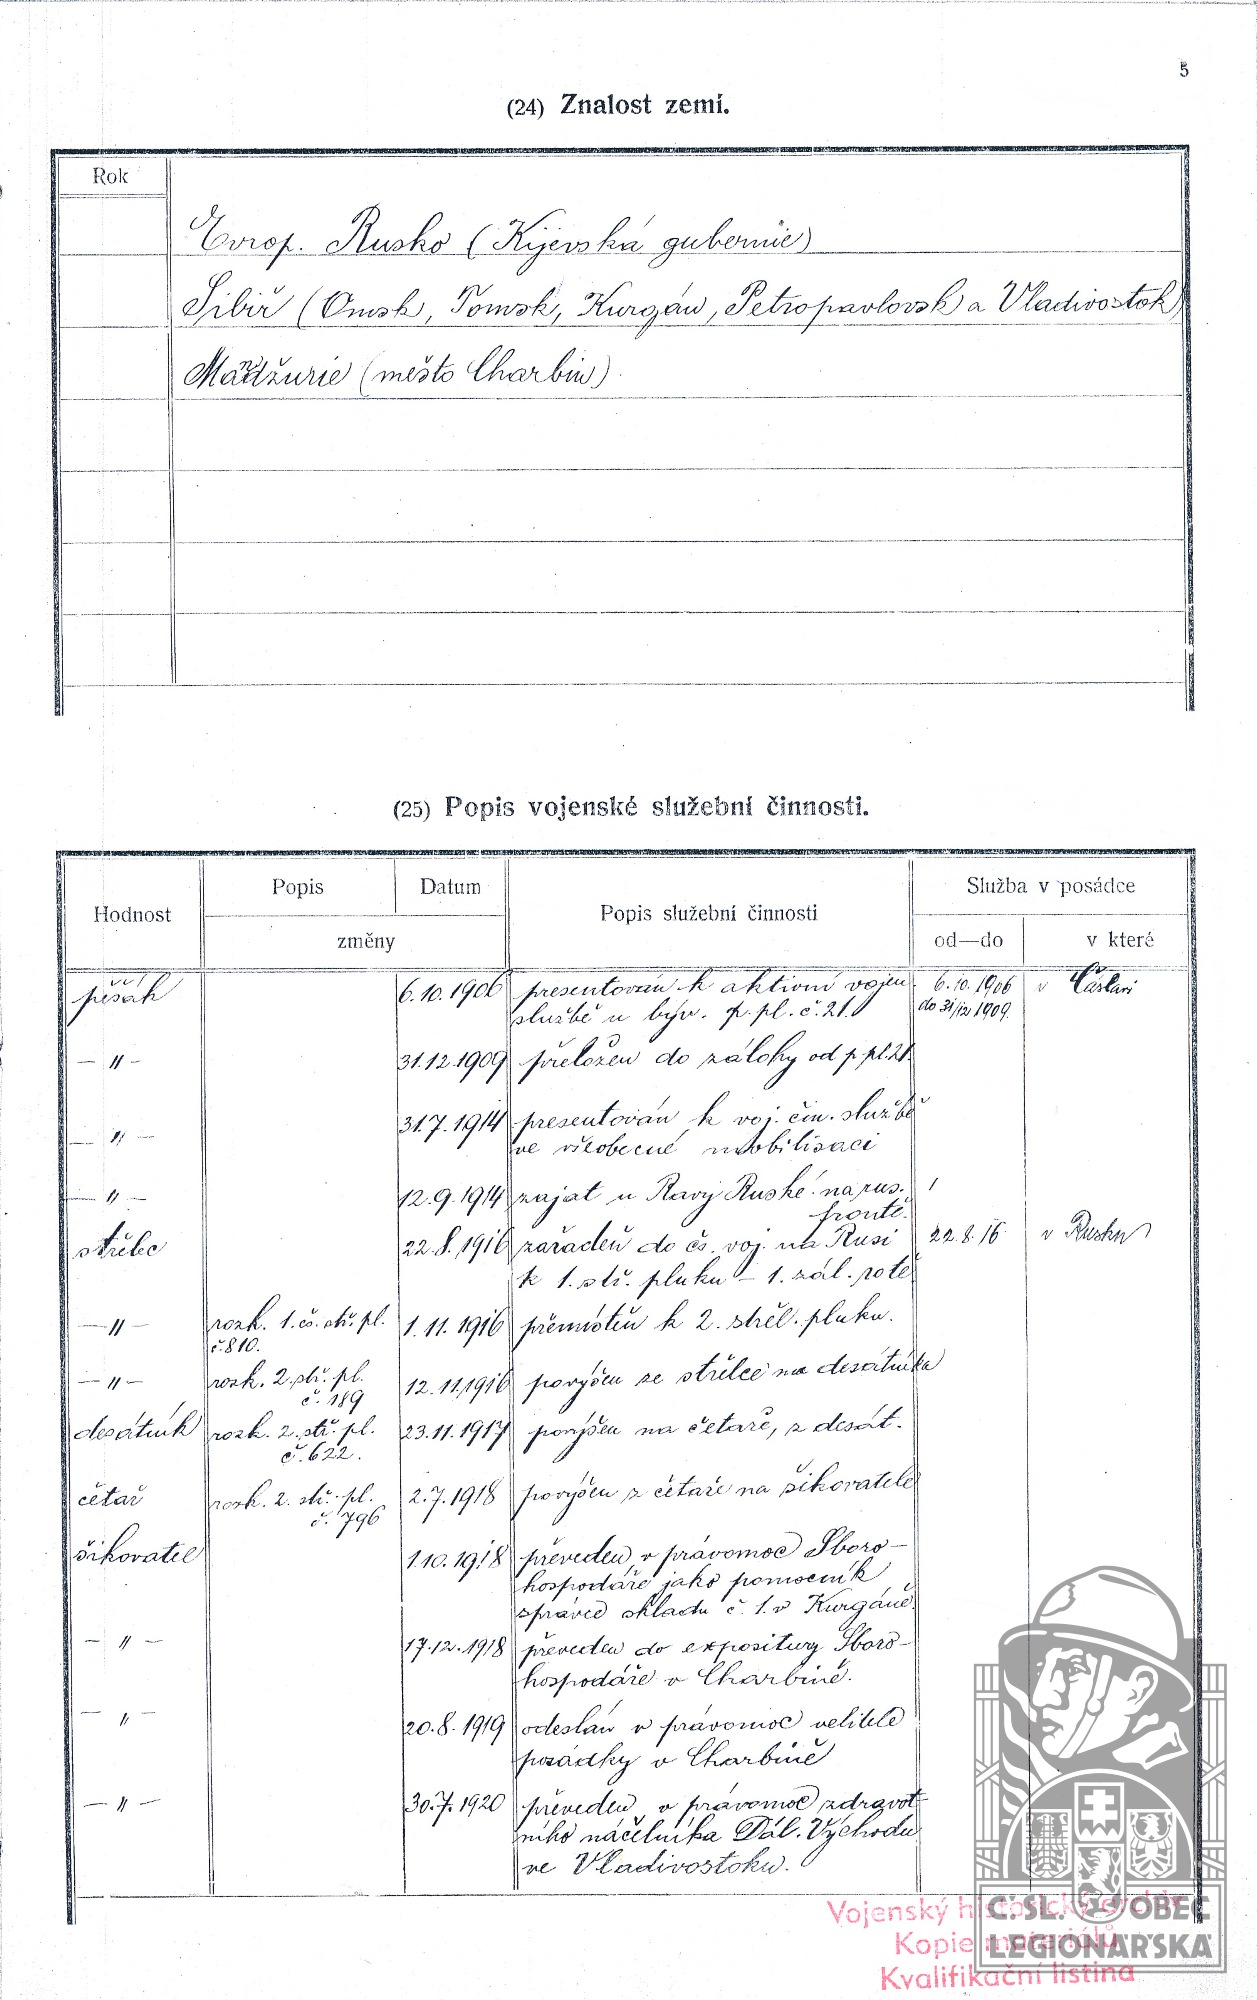 5
(24) Znalost zemí.
Rok
Evrop. Rusko (Kijevská gubernie)
Sibiř (Omsk, Tomsk, Kurgán, Petropavlovsk a Vladivostok)
Mandžurie (město Charbin)
(25) Popis vojenské služební činnosti.
Hodnost
Popis
Datum
změny
Popis služební činnosti
Služba v posádce
od—do
v které
pěšák 6.10.1906 presentován k aktivní vojen. 6.10.1906 v Čáslavi
službě u býv. p. pl. č. 21. do 31/12 1909.
— " — 31.12.1909 přeložen do zálohy od p. pl. 21.
— " — 31.7.1914 presentován k voj. čin. službě
ve všeobecné mobilisaci
— " — 12.9.1914 zajat u Ravy Ruské na rus.
frontě.
střelec 22.8.1916 zařaděn do čs. voj. na Rusi 22.8.16 v Rusku
k 1. stř. pluku – 1. zál. rotě
— " — rozk. 1. čs. stř. pl. 1.11.1916 přemístěn k 2. střel. pluku.
č. 810.
— " — rozk. 2. stř. pl. 12.11.1916 povýšen ze střelce na desátníka
č. 189
desátník rozk. 2. stř. pl. 23.11.1917 povýšen na četaře, z desát.
č. 622.
četař rozk. 2. stř. pl. 2.7.1918 povýšen z četaře na šikovatele
č. 796
šikovatel 1.10.1918 převeden v právomoc Sboro-
hospodáře jako pomocník
správce skladu č. 1. v Kurgáně.
— " — 17.12.1918 převeden do expositury Sboro-
hospodáře v Charbině.
— " — 20.8.1919 odeslán v právomoc velitele
posádky v Charbině
— " — 30.7.1920 převeden v právomoc zdravot-
ního náčelníka Dál. Východu
ve Vladivostoku.
Vojenský historický archiv
Kopie materiálů
Kvalifikační listina
ČSL. OBEC
LEGIONÁŘSKÁ